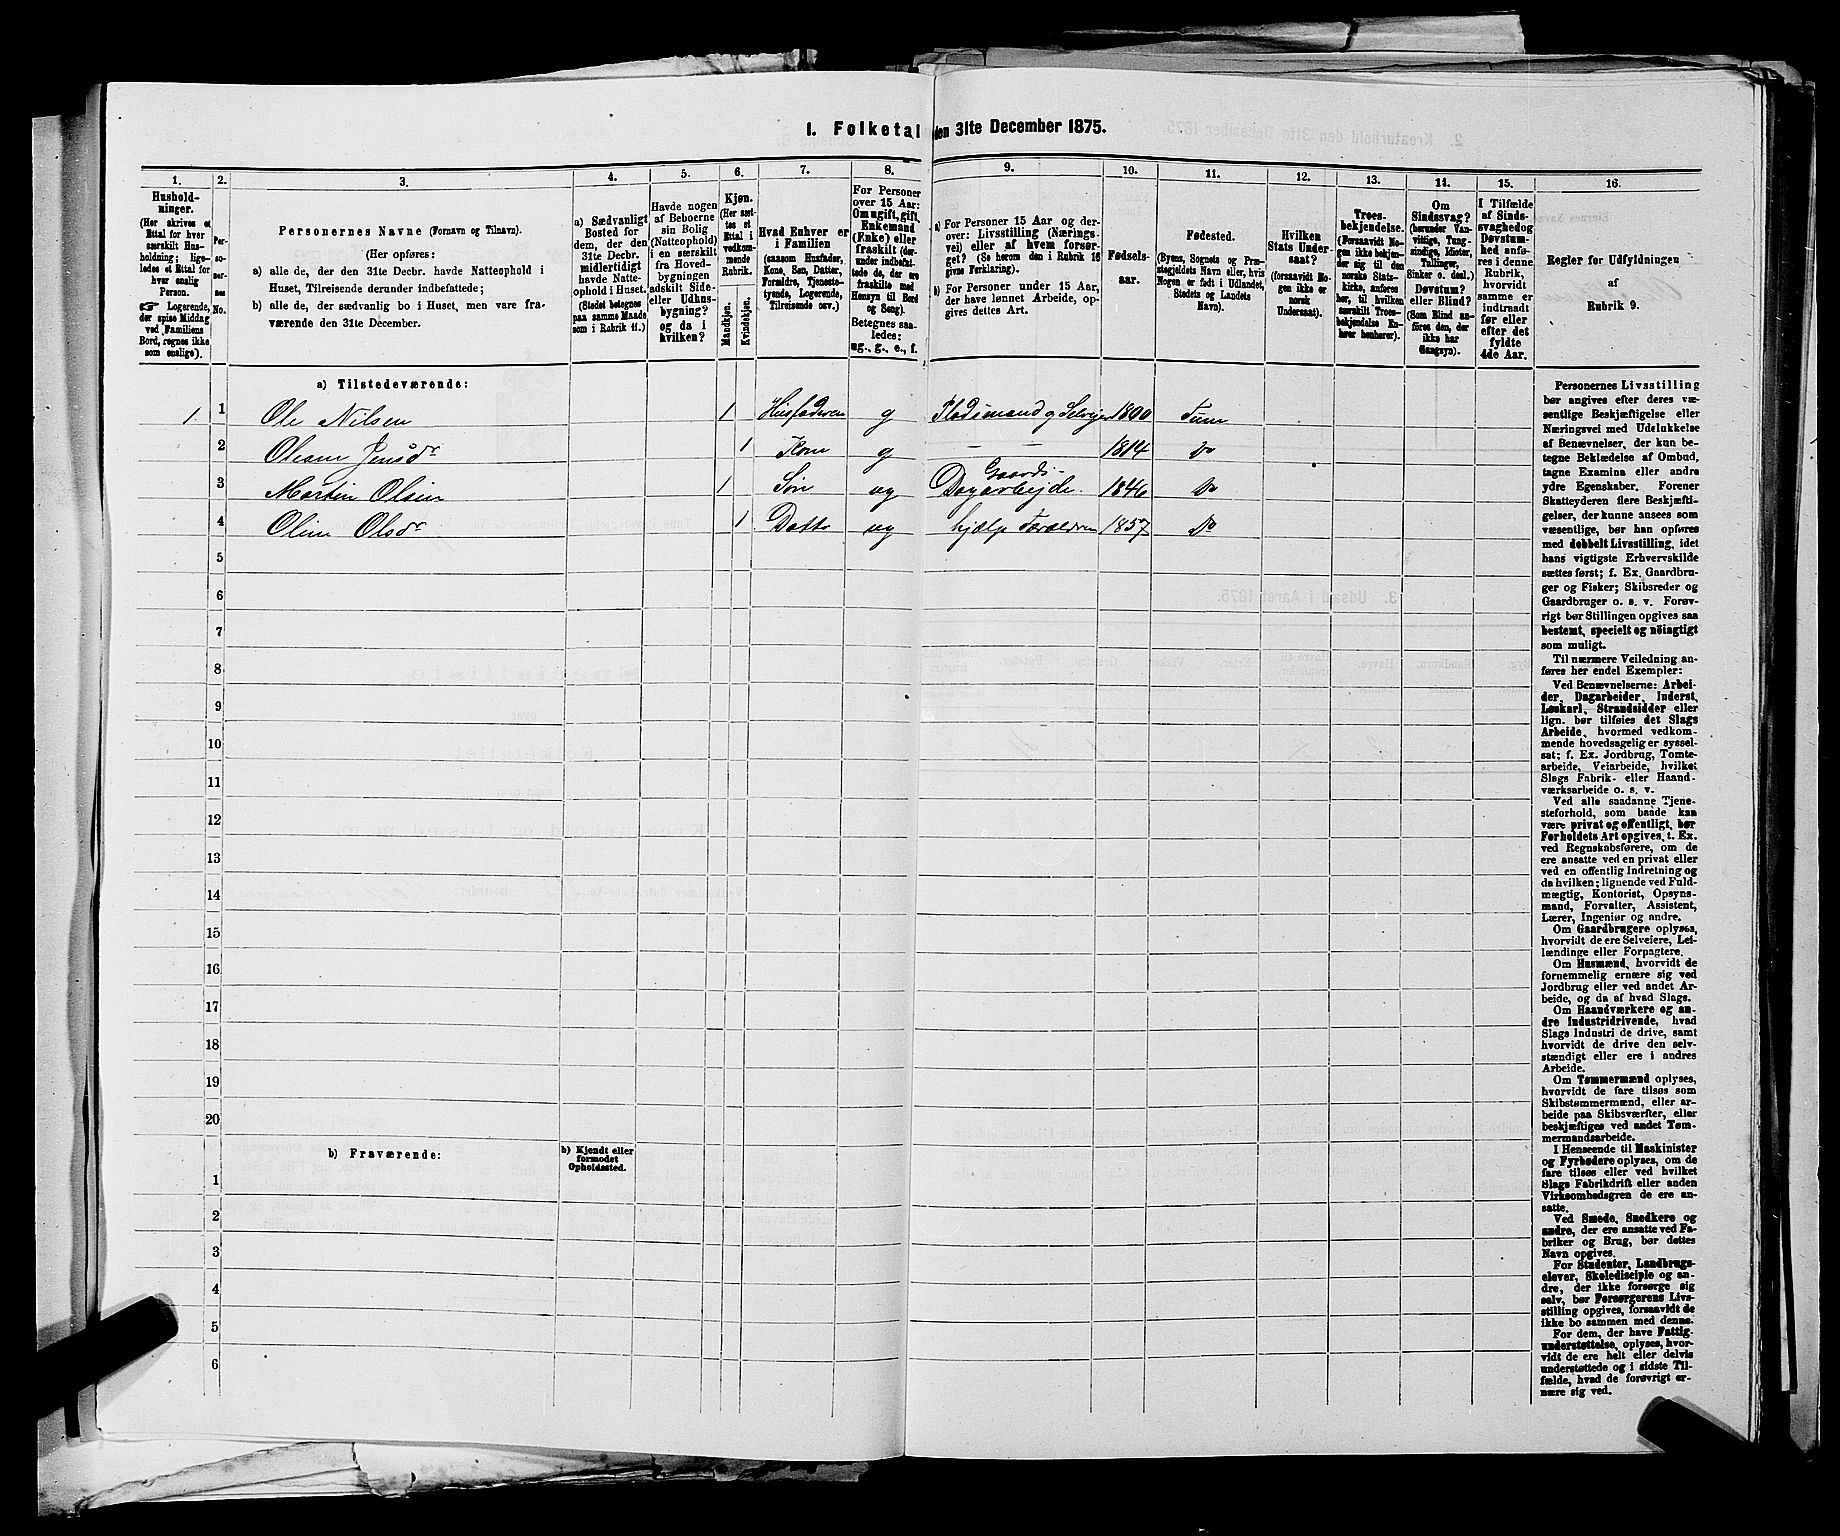 I. Folketal den 31te December 1875.
1. 2. 3. 4. 5. 6. 7. 8. 9. 10. 11. 12. 13. 14. 15. 16.
Hushold-
ninger.
(Her skrives et
Ettal for hver
særskilt Hus-
holdning; lige-
ledes et Ettal for
hver enslig
Person.
☞ Logerende,
der spise Middag
ved Familiens
Bord, regnes ikke
som enslige).
Per-
so-
ner-
nes
No.
Personernes Navne (Fornavn og Tilnavn).
(Her opføres:
a) alle de, der den 31te Decbr. havde Natteophold i
Huset, Tilreisende derunder indbefattede;
b) alle de, der sædvanlig bo i Huset, men vare fra-
værende den 31te December.
a) Sædvanligt
Bosted for
dem, der den
31te Decbr.
midlertidigt
havde Natte-
ophold i Huset.
(Stedet betegnes
paa samme Maade
som i Rubrik 11.)
Havde nogen
af Beboerne
sin Bolig
(Natteophold)
i en særskilt
fra Hoved-
bygningen
adskilt Side-
eller Udhus-
bygning?
og da i
hvilken?
Kjøn.
(Her sæt-
tes et
Ettal i
vedkom-
mende
Rubrik.
Mandkjøn.
Kvindekjøn.
Hvad Enhver er
i Familien
(saasom Husfader,
Kone, Søn, Datter,
Forældre, Tjeneste-
tyende, Logerende,
Tilreisende osv.)
For Personer
over 15 Aar:
Om ugift, gift,
Enkemand
(Enke) eller
fraskilt (der-
under indbefat-
tede de, der ere
fraskilte med
Hensyn til Bord
og Seng).
Betegnes saa-
ledes:
ug., g., e., f.
a) For Personer 15 Aar og der-
over: Livsstilling (Nærings-
vei) eller af hvem forsør-
get? (Se herom den i Rubrik 16
givne Forklaring).
b) For Personer under 15 Aar,
der have lønnet Arbeide, op-
gives dettes Art.
Fødsels-
aar.
Fødested.
(Byens, Sognets og Præ-
stegjeldets Navn eller, hvis
Nogen er født i Udlandet,
Stedets og Landets
Navn).
Hvilken
Stats Under-
saat?
(forsaavidt No-
gen ikke er
norsk
Undersaat).
Troes-
bekjendelse.
(Forsaavidt No-
gen ikke bekjen-
der sig til den
norske Stats-
kirke, anføres
her, til hvilken
særskilt Troes-
bekjendelse En-
hver henhører).
Om
Sindssvag?
(herunder Van-
vittige, Tung-
sindige, Idioter,
Tullinger,
Sinker o. desl.)
Døvstum?
eller Blind?
(Som Blind an-
føres den, der
ikke har
Gangsyn).
I Tilfælde
af Sinds-
svaghed og
Døvstum-
hed anfø-
res i denne
Rubrik,
hvorvidt
samme er
indtraadt
før eller
efter det
fyldte
4de Aar.
Regler for Udfyldningen
af
Rubrik 9.
a) Tilstedeværende:
1 1 Ole Nilsen 1 Husfaderen g Pladsmand g Selveier 1800 Tune
2 Oliane Jensdr 1 Kone g — — 1814 Do
3 Martin Olsen 1 Søn ug Gaards-
Dagarbejde. 1846 Do
4 Oline Olsdr 1 Datte ug hjælp Forældrene 1857 Do
5
6
7
8
9
10
11
12
13
14
15
16
17
18
19
20
b) Fraværende:
b) Kjendt eller
formodet
Opholdssted.
1
2
3
4
5
6
Personernes Livsstilling
bør angives efter deres væ-
sentlige Beskjæftigelse eller
Næringsvei med Udelukkelse
af Benævnelser, der kun be-
tegne Beklædelse af Ombud,
tagne Examina eller andre
ydre Egenskaber. Forener
Skatteyderen flere Beskjæfti-
gelser, der kunne ansees som
væsentlige, bør han opføres
med dobbelt Livsstilling, idet
hans vigtigste Erhvervskilde
sættes først; f. Ex. Gaardbru-
ger og Fisker; Skibsreder og
Gaardbruger o. s. v. Forøv-
rigt bør Stillingen opgives saa
bestemt, specielt og nöiagtigt
som muligt.
Til nærmere Veiledning an-
føres her endel Exempler:
Ved Benævnelserne: Arbei-
der, Dagarbeider, Inderst,
Løskarl, Strandsidder eller
lign. bør tilføies det Slags
Arbeide, hvormed vedkom-
mende hovedsagelig er syssel-
sat; f. Ex. Jordbrug, Tomte-
arbeide, Veiarbeide, hvilket
Slags Fabrik- eller Haand-
værksarbeide o. s. v.
Ved alle saadanne Tjene-
steforhold, som baade kan
være privat og offentligt, bør
Forholdets Art opgives, t. Ex.
ved Regnskabsførere, om de
ere ansatte ved en privat eller
ved en offentlig Indretning og
da hvilken; lignende ved Fuld-
mægtig, Kontorist, Opsyns-
mand, Forvalter, Assistent,
Lærer, Ingeniør og andre.
Om Gaardbrugere oplyses,
hvorvidt de ere Selveiere, Lei-
lændinge eller Forpagtere.
Om Husmænd, hvorvidt de
fornemmelig ernære sig ved
Jordbrug eller ved andet Ar-
beide, og da af hvad Slags.
Om Haandværkere og an-
dre Industridrivende, hvad
Slags Industri de drive, samt
hvorvidt de drive den selv-
stændigt eller ere i andres
Arbeide.
Om Tømmermænd oplyses,
hvorvidt de fare tilsøs som
Skibstømmermænd, eller ar-
beide paa Skibsværfter, eller
beskjæftiges ved andet Tøm-
mermandsarbeide.
I Henseende til Maskinister
og Fyrbødere oplyses, om de
fare tilsøs eller ved hvilket
Slags Fabrikdrift eller anden
Virksombødsgren de ere an-
satte.
Ved Smede, Snedkere og
andre, der ere ansatte ved Fa-
briker og Brug, bør dettes
Navn opgives.
For Studenter, Landbrugs-
elever, Skoledisciple og an-
dre, der ikke forsørge sig
selv, bør Forsørgerens Livs-
stilling opgives, forsaavidt de
ikke bo sammen med denne.
For dem, der have Fattig-
understøttelse, oplyses, hvor-
vidt de ere helt eller delvis
understøttede og i sidste Til-
fælde, hvad de forøvrigt er-
nære sig ved.